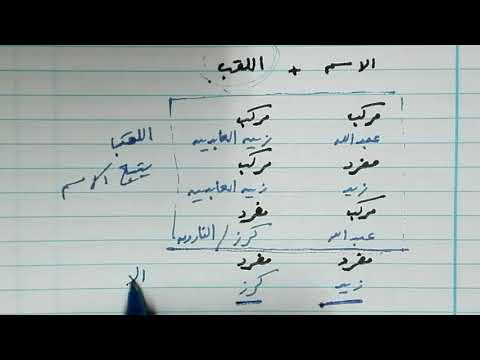 الاسم + اللقب
مركب مركب
عبدالله زين العابدين
مفرد مركب
زيد زين العابدين
مركب مفرد
عبدالله كرز / الفاروق
مفرد مفرد
زيد كرز
اللقب
يتبع الاسم
الا